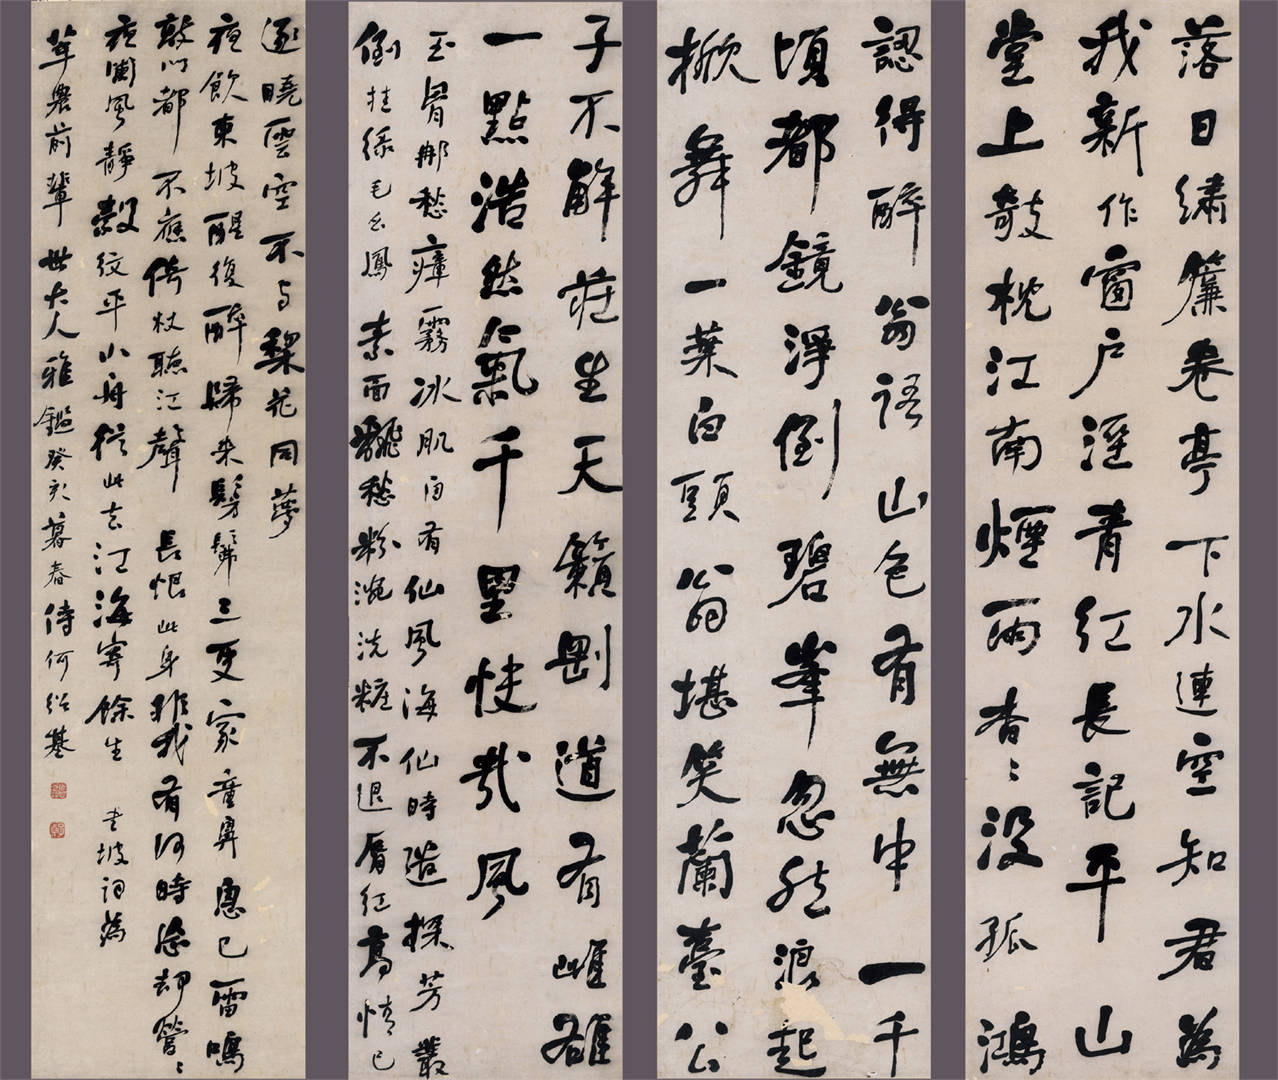 落日繡簾卷亭下水連空知君為
我新作窗戶溼青紅長記平山
堂上敧枕江南煙雨杳杳沒孤鴻
認得醉翁語山色有無中一千
頃都鏡淨倒碧峯忽然浪起
掀舞一葉白頭翁堪笑蘭臺公
子不解莊生天籟剛道有雌雄
一點浩然氣千里快哉風
玉骨那愁瘴霧冰肌自有仙風海仙時遣探芳叢
倒挂綠毛幺鳳素面翻愁粉涴洗糚不退脣紅高情已
逐曉雲空不與棃花同夢
夜飲東坡醒復醉歸來髣髴三更家童鼻息已雷鳴
敲門都不應倚杖聽江聲長恨此身非我有何時忘却營營
夜闌風靜縠紋平小舟從此去江海寄餘生老坡詞為
前輩世大人雅鑑癸亥暮春侍何紹基